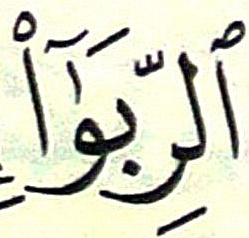 ٱلرِّبَوٰٓا۟